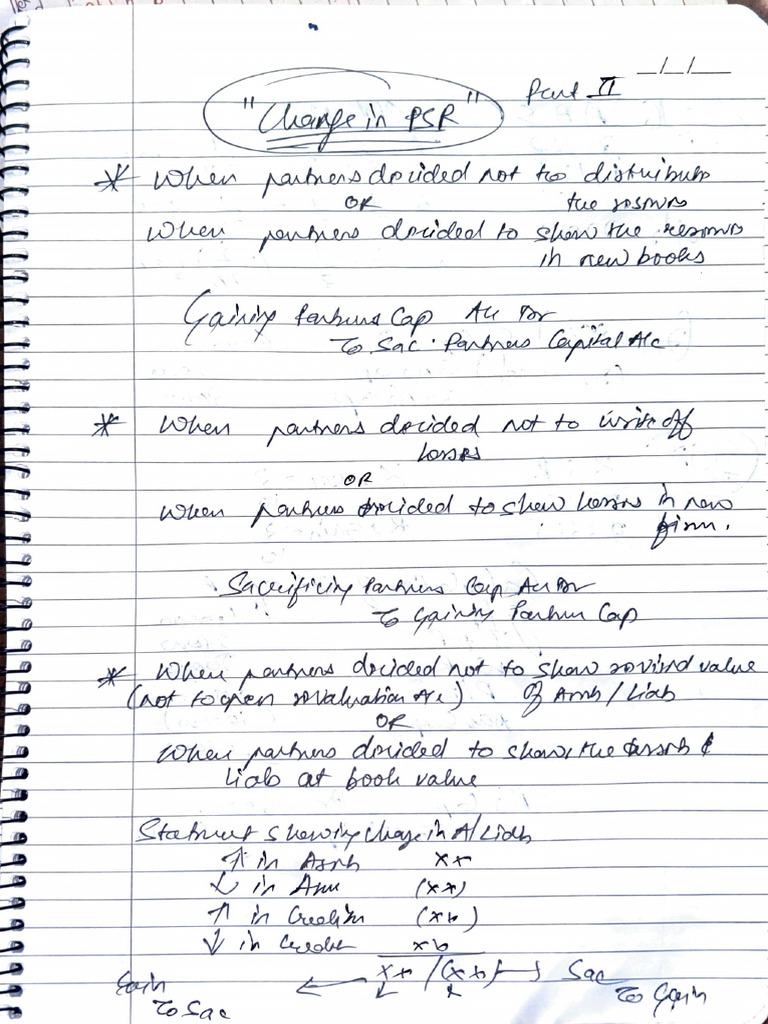 Part II _/_/__
"Change in PSR"
* When partners decided not to distribute
OR the reserves
When partners decided to show the reserves
in new books
Gaining Partners Cap A/c Dr
To Sac. Partners Capital A/c
* When partners decided not to write off
losses
OR
When partners decided to show losses in new
firm.
Sacrificing Partners Cap A/c Dr
To Gaining Partner Cap
* When partners decided not to show revised value
(not to open revaluation A/c). of Assets / Liab
OR
When partners decided to show the assets &
liab at book value
Statment showing change in A/Liab
↑ in Assets xx
↓ in Assets (xx)
↑ in Creditors (xx)
↓ in Creditors xx
Gain ← xx / (xx) → Sac
To Sac To Gain